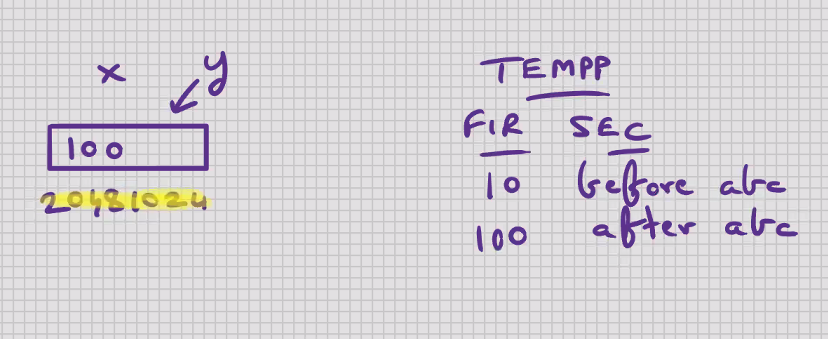 x y
100
20481024
TEMPP
FIR SEC
10 before abc
100 after abc